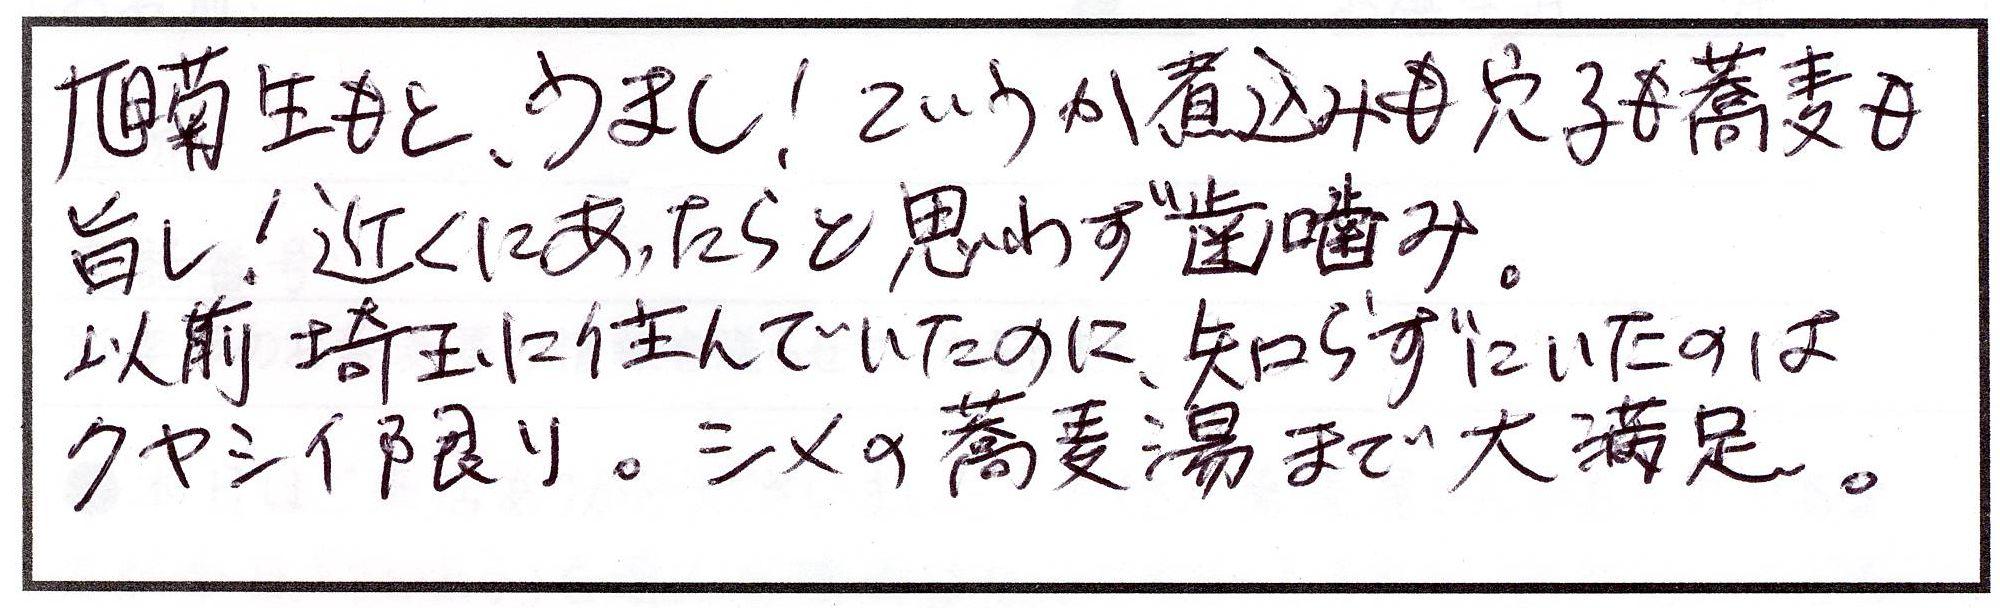 旭菊生もと、うまし！というか煮込みも穴子も蕎麦も
旨し！近くにあったらと思わず歯噛み。
以前埼玉に住んでいたのに、知らずにいたのは
クヤシイ限り。シメの蕎麦湯まで大満足。